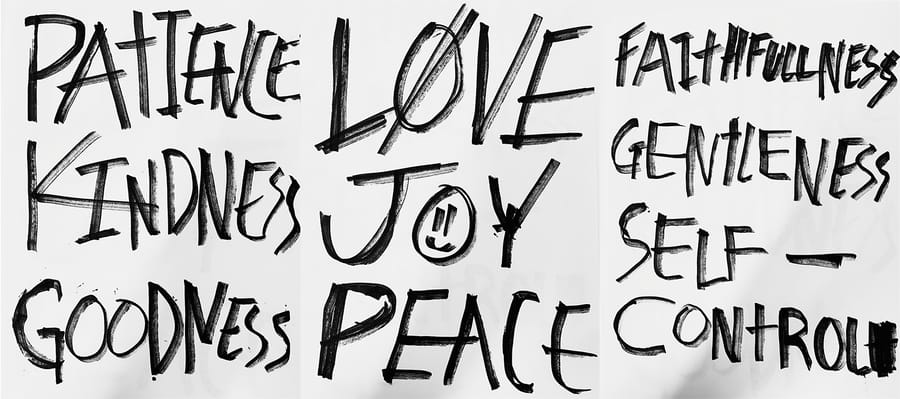 PATIENCE
KINDNESS
GOODNESS
LØVE
JOY
PEACE
FAITHFULLNESS
GENTLENESS
SELF-
CONTROL